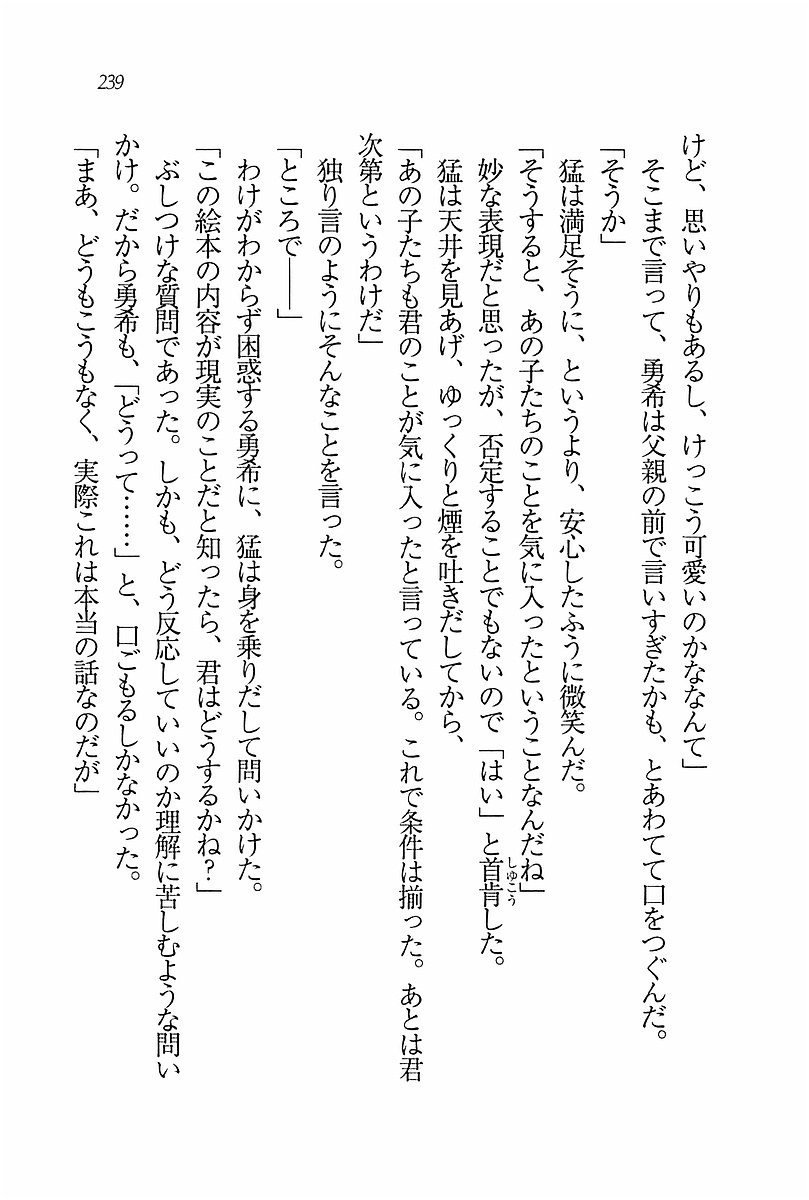 239
けど、思いやりもあるし、けっこう可愛いのかななんて」
そこまで言って、勇希は父親の前で言いすぎたかも、とあわてて口をつぐんだ。
「そうか」
猛は満足そうに、というより、安心したふうに微笑んだ。
「そうすると、あの子たちのことを気に入ったということなんだね」
妙な表現だと思ったが、否定することでもないので「はい」と首肯した。
しゅこう
猛は天井を見あげ、ゆっくりと煙を吐きだしてから、
「あの子たちも君のことが気に入ったと言っている。これで条件は揃った。あとは君
次第というわけだ」
独り言のようにそんなことを言った。
「ところで――」
わけがわからず困惑する勇希に、猛は身を乗りだして問いかけた。
「この絵本の内容が現実のことだと知ったら、君はどうするかね？」
ぶしつけな質問であった。しかも、どう反応していいのか理解に苦しむような問い
かけ。だから勇希も、「どうって……」と、口ごもるしかなかった。
「まあ、どうもこうもなく、実際これは本当の話なのだが」